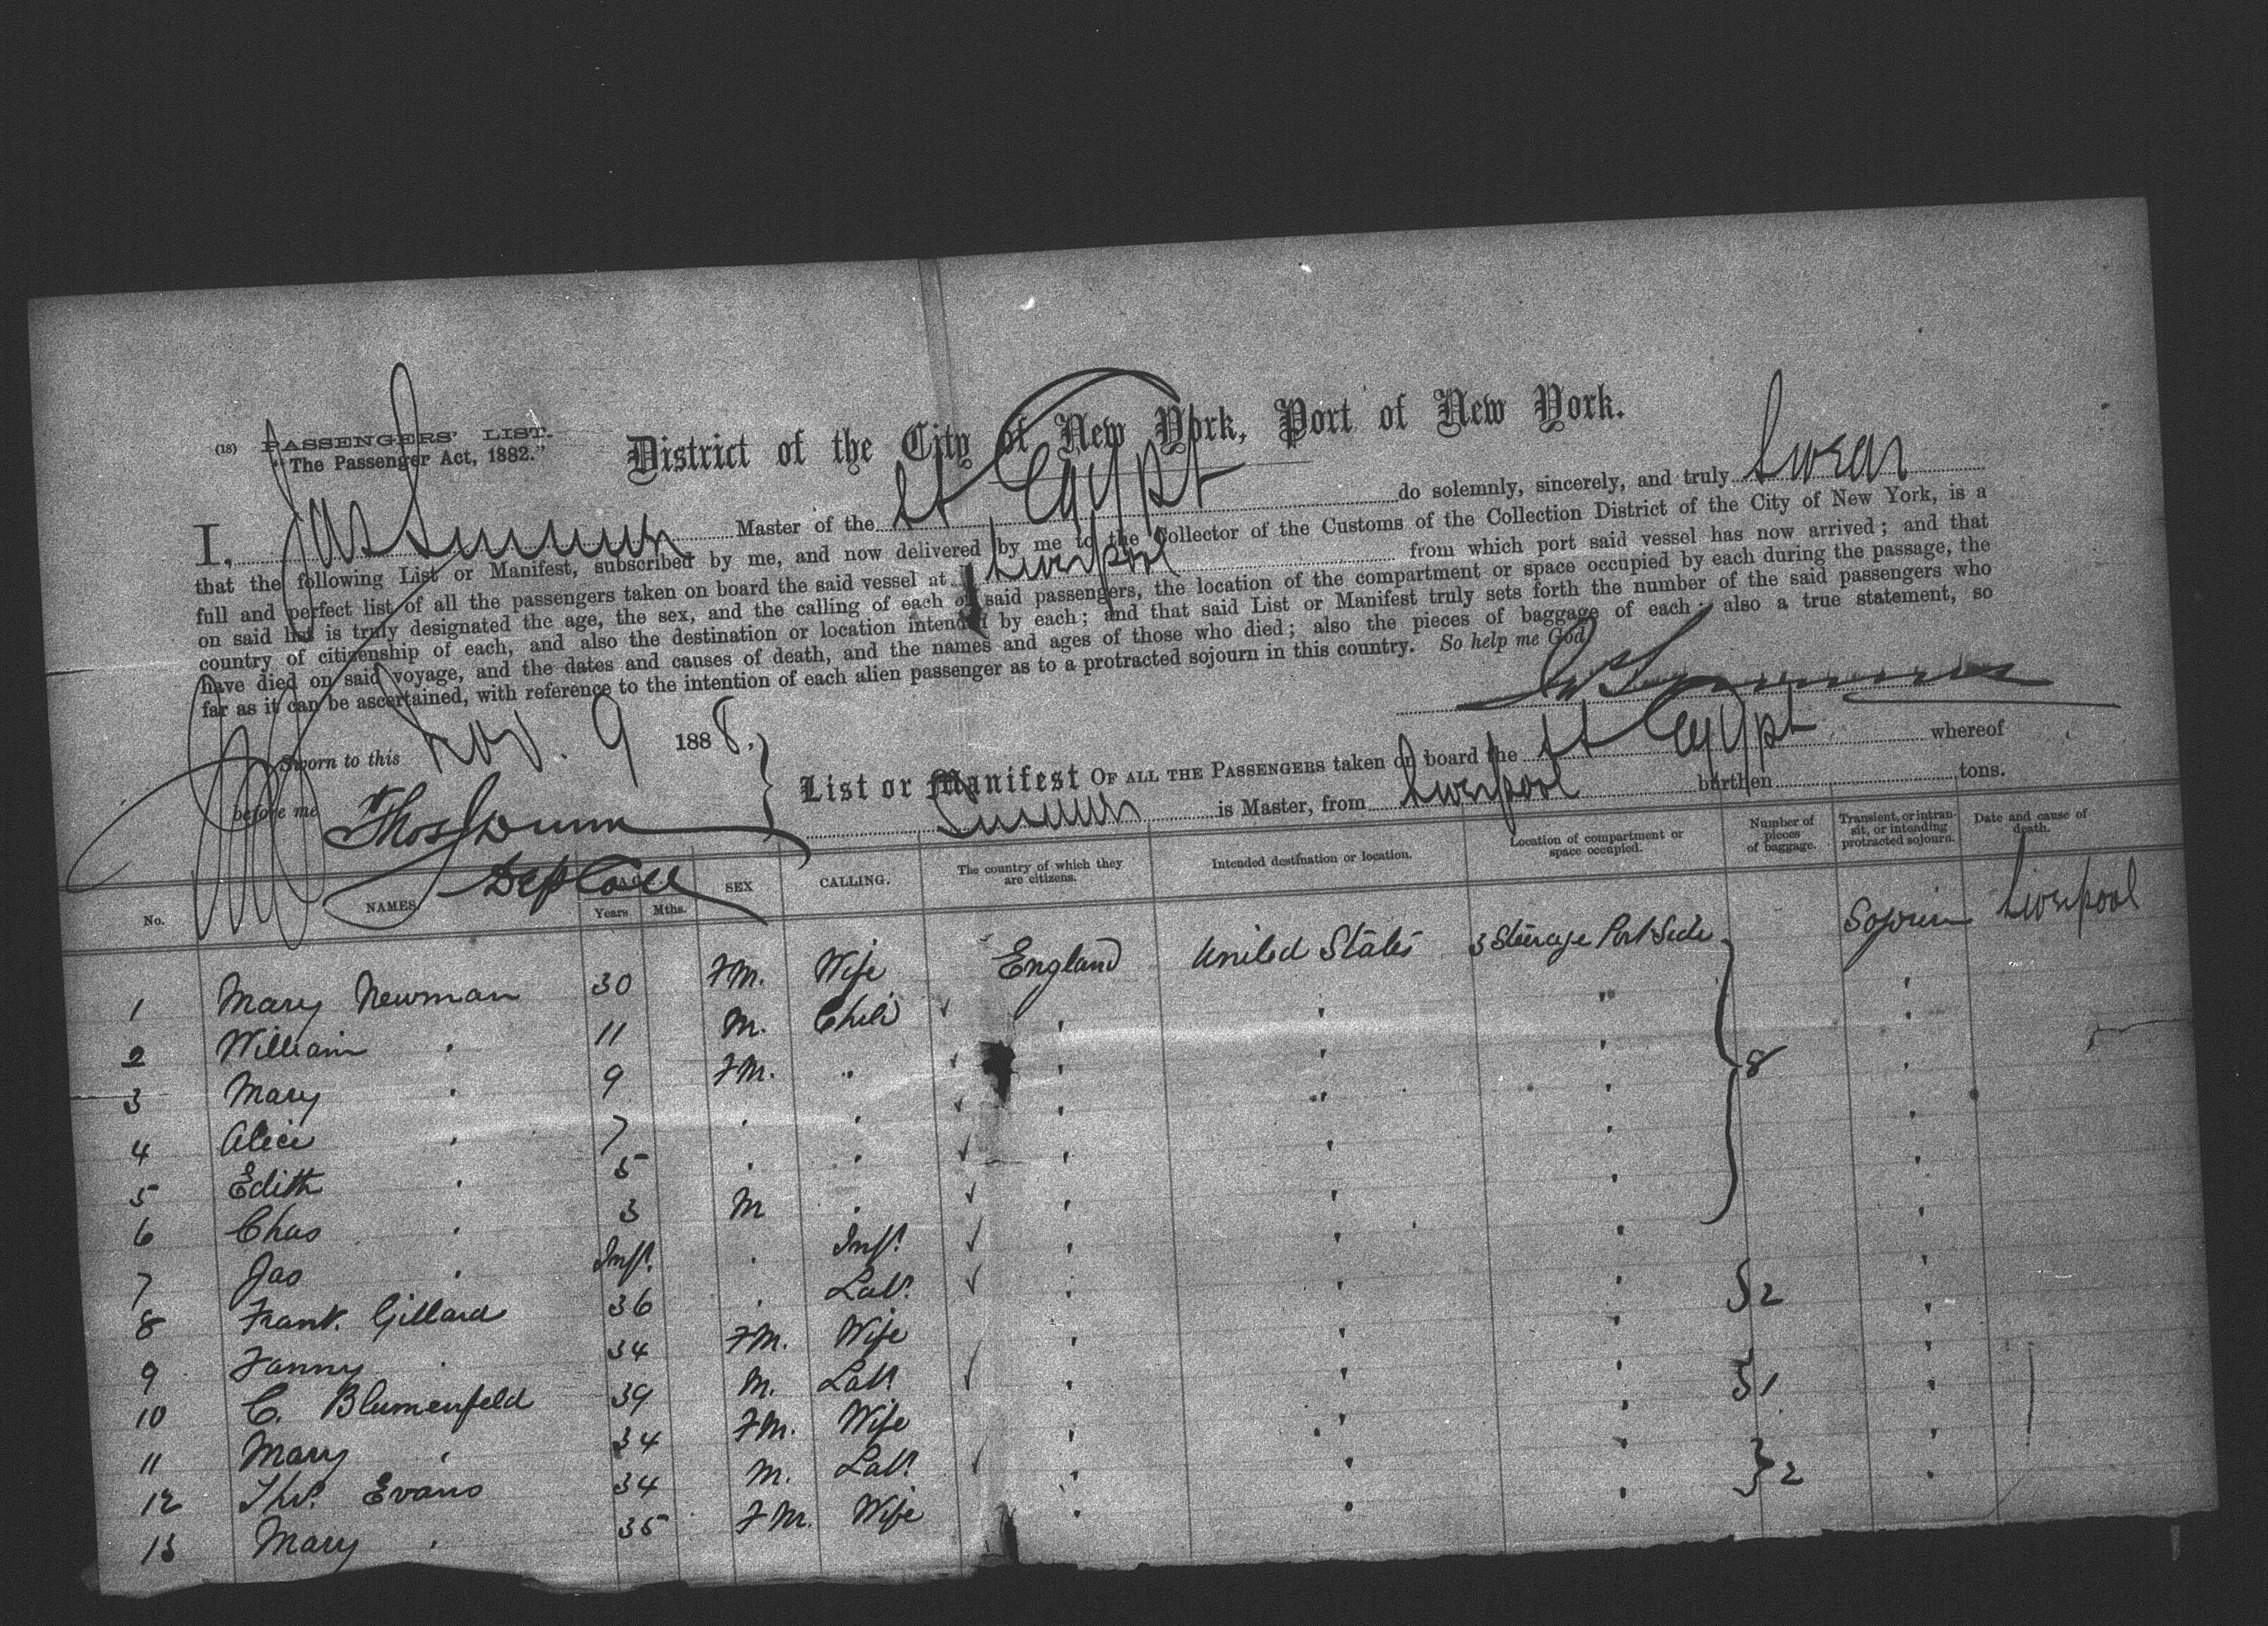 (18) PASSENGERS' LIST.
"The Passenger Act, 1882."
District of the City of New York, Port of New York.
I, Jas Sumner Master of the SS Egypt do solemnly, sincerely, and truly Swear
that the following List or Manifest, subscribed by me, and now delivered by me to the Collector of the Customs of the Collection District of the City of New York, is a
full and perfect list of all the passengers taken on board the said vessel at Liverpool from which port said vessel has now arrived; and that
on said list is truly designated the age, the sex, and the calling of each of said passengers, the location of the compartment or space occupied by each during the passage, the
country of citizenship of each, and also the destination or location intended by each; and that said List or Manifest truly sets forth the number of the said passengers who
have died on said voyage, and the dates and causes of death, and the names and ages of those who died; also the pieces of baggage of each; also a true statement, so
far as it can be ascertained, with reference to the intention of each alien passenger as to a protracted sojourn in this country. So help me God
Sworn to this Nov. 9 1888,
before me Thos Dunn
Dep Coll
List or Manifest OF ALL THE PASSENGERS taken on board the SS Egypt whereof
Sumner is Master, from Liverpool burthen tons.
No. NAMES. Years. Mths. SEX CALLING. The country of which they are citizens. Intended destination or location. Location of compartment or space occupied. Number of pieces of baggage. Transient, or intransit, or intending protracted sojourn. Date and cause of death.
1 Mary Newman 30 FM. Wife England United States 3 Steerage Port Side Sojourn Liverpool
2 William " 11 M. Child ✓ " " " "
3 Mary " 9 FM. " ✓ " " " 8 "
4 Alice " 7 " " ✓ " " " "
5 Edith " 5 " " ✓ " " " "
6 Chas " 3 M " ✓ " " " "
7 Jas " Inft. " Inft. ✓ " " " "
8 Frank Gillard 36 " Labr. ✓ " " " 2 "
9 Fanny " 34 FM. Wife " " " "
10 C. Blumenfeld 39 M. Labr ✓ " " " 1 "
11 Mary " 34 FM. Wife " " " "
12 Tho. Evans 34 M. Labr ✓ " " " 2 "
13 Mary " 35 FM. Wife " " " "